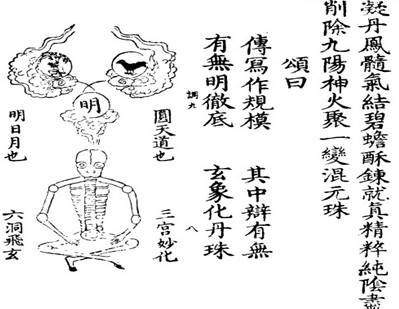 凝丹鳳髓氣結碧蟾酥鍊就真精粹純陰盡
削除九陽神火聚一變混元珠
頌曰
傳寫作規模 其中辯有無
有無明徹底 玄象化丹珠
調九
八
明
圓天道也
明日月也
三宮妙化
六洞飛玄